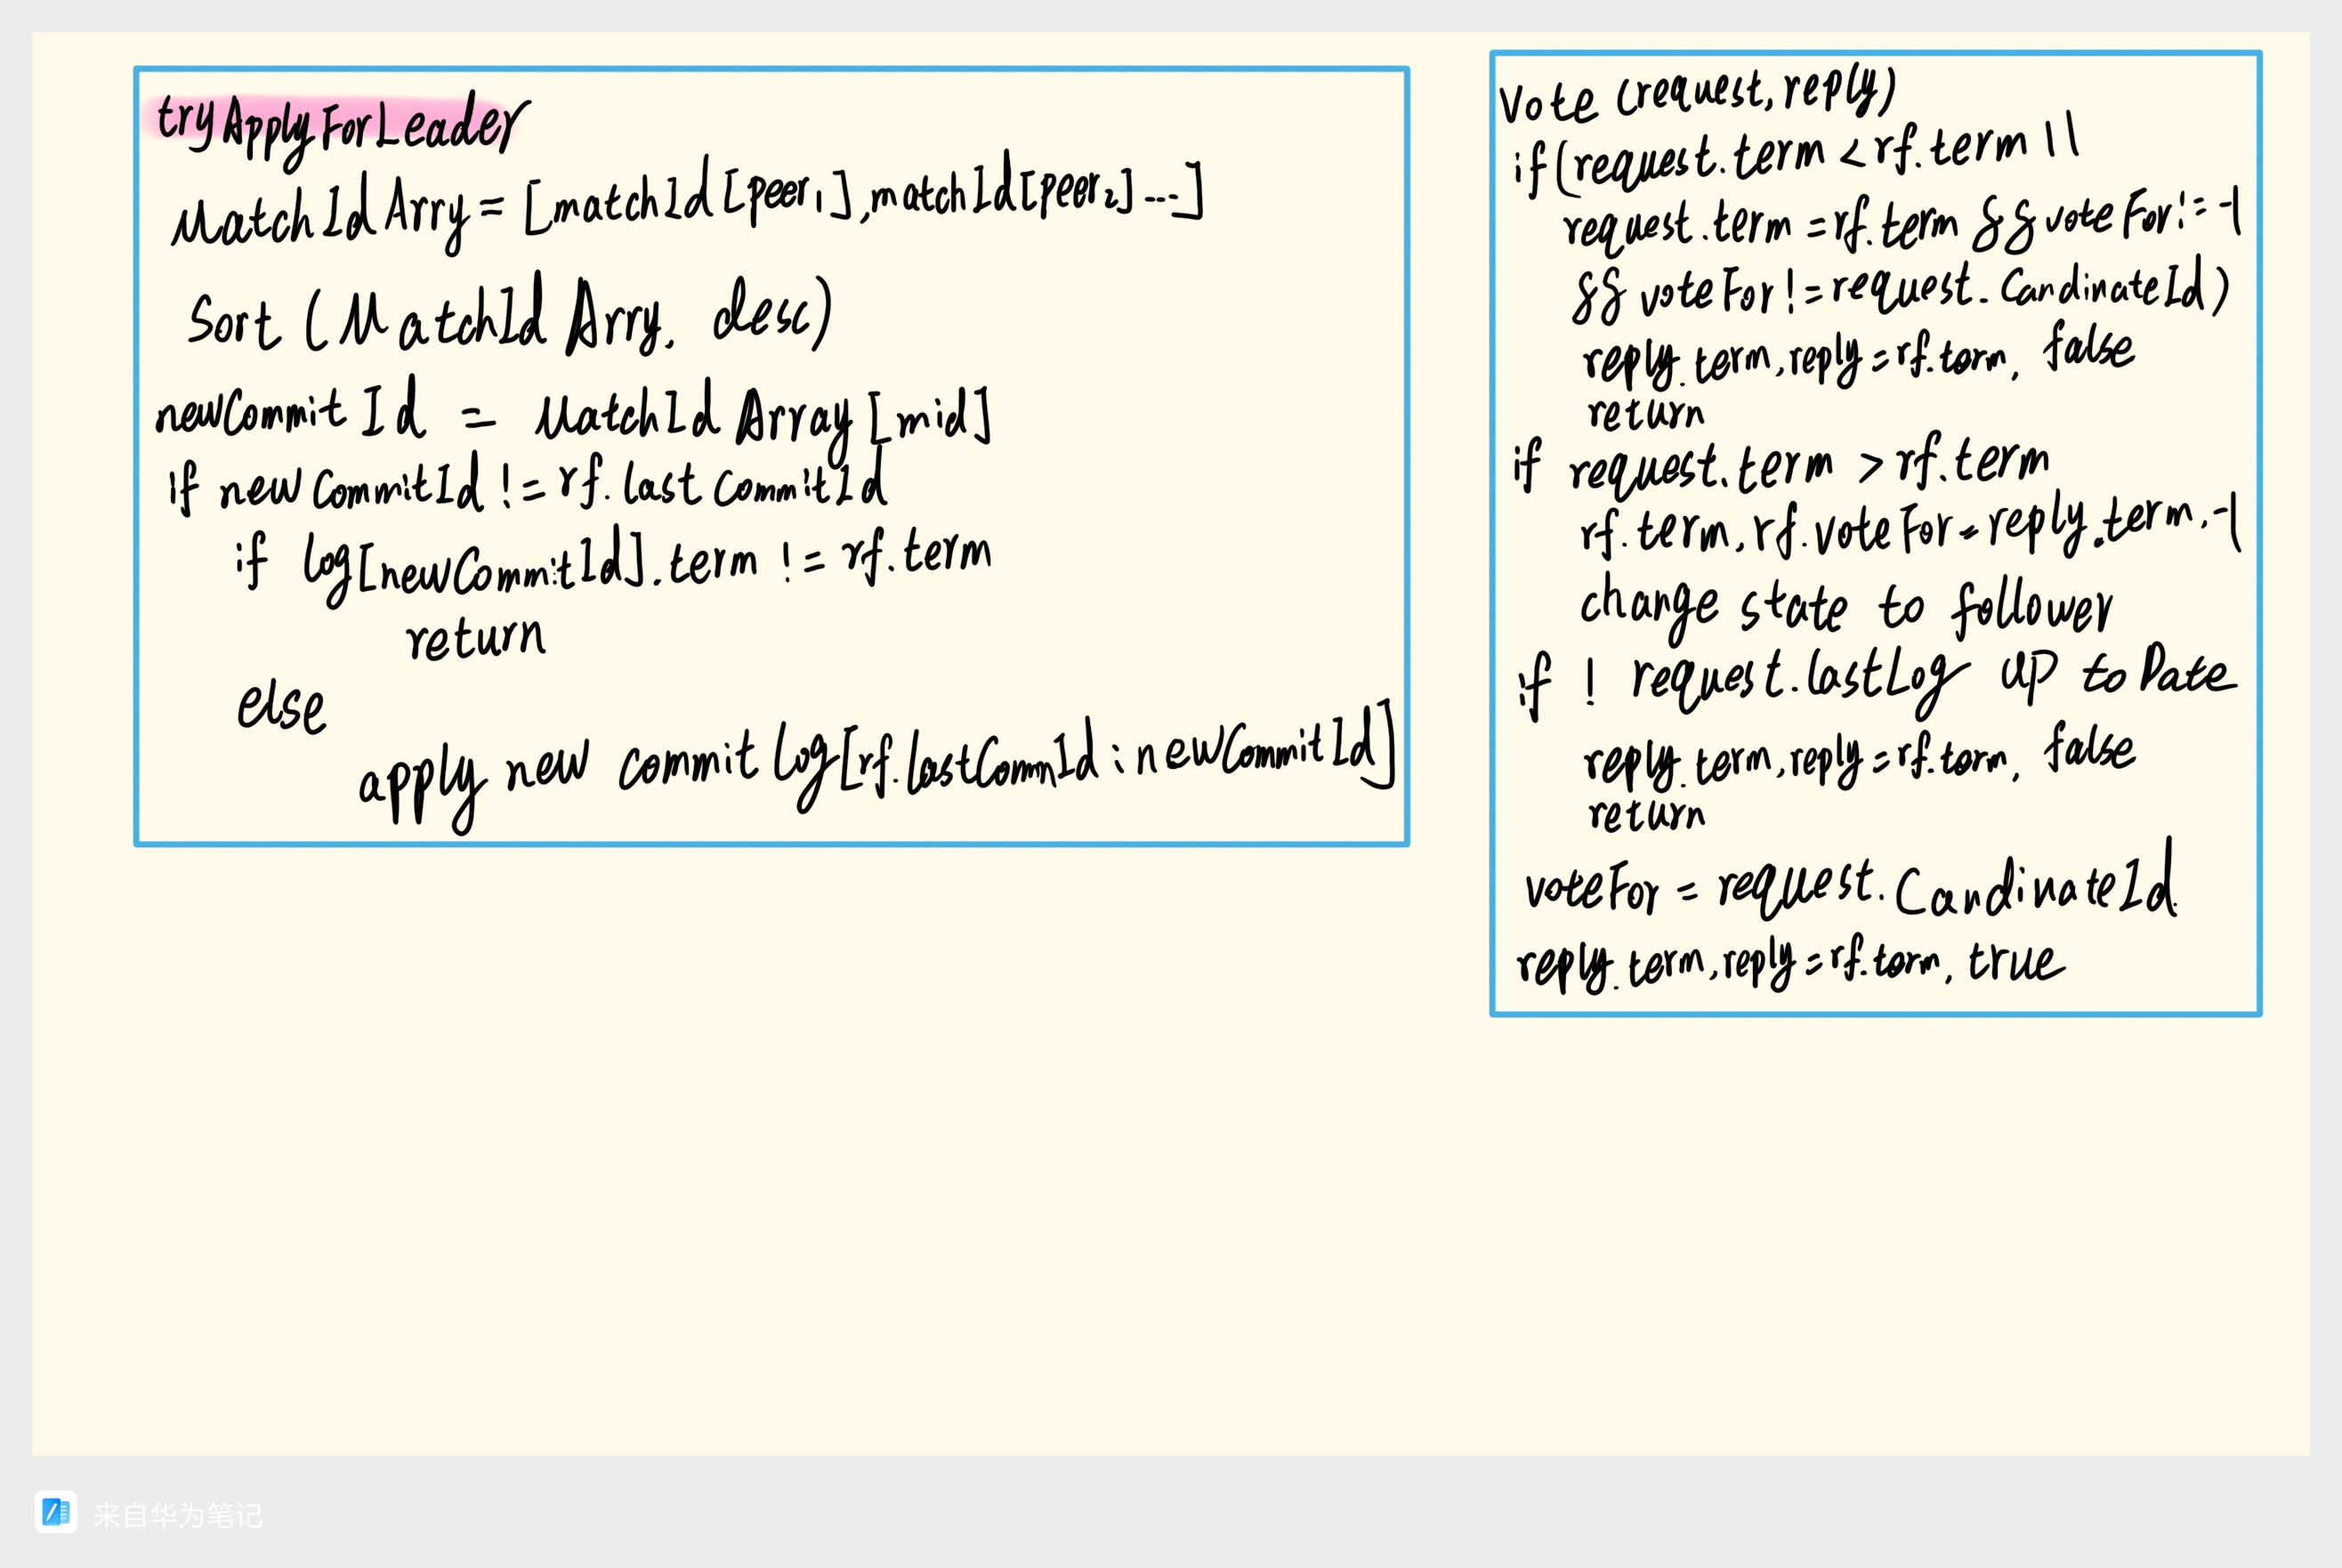 tryApplyForLeader
MatchIdArry = [matchId[peer1],matchId[peer2]---]
Sort (MatchId Arry, desc)
newCommitId = MatchId Array[mid]
if newCommitId != rf.lastCommitId
if log[newCommitId].term != rf.term
return
else
apply new commit log[rf.lastCommId:newCommitId]
Vote (request,reply)
if(request.term < rf.term ||
request.term = rf.term && voteFor != -1
&& voteFor != request.CandinateId)
reply.term,reply = rf.term, false
return
if request.term > rf.term
rf.term, rf.voteFor = reply.term, -1
change state to follower
if ! request.lastLog up to Date
reply.term,reply = rf.term, false
return
voteFor = request.CandinateId
reply.term,reply = rf.term, true
来自华为笔记